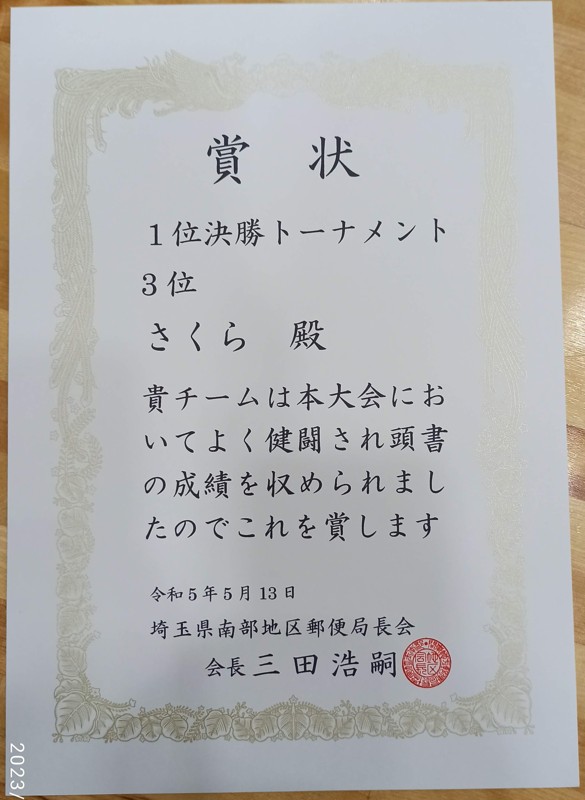 賞 状
1位決勝トーナメント
3位
さくら 殿
貴チームは本大会にお
いてよく健闘され頭書
の成績を収められまし
たのでこれを賞します
令和5年5月13日
埼玉県南部地区郵便局長会
会長 三田浩嗣
2023/